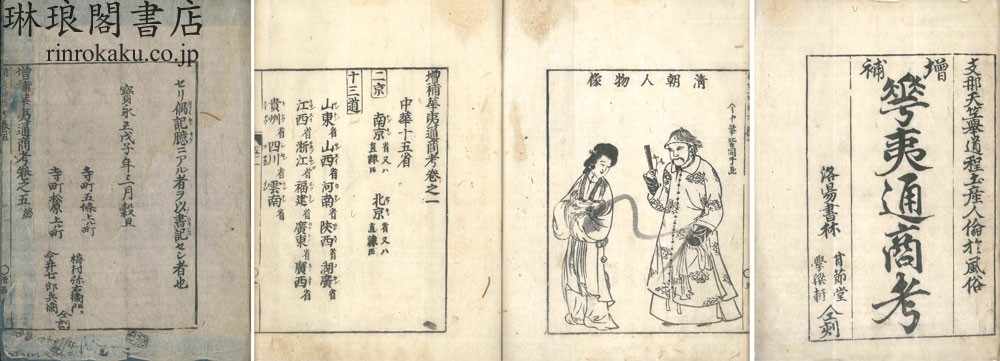 琳琅閣書店
rinrokaku.co.jp
支那天竺舉道程土産人倫於風俗
増補
華夷通商考
洛陽書林
甘節堂
學梁軒
仝刻
清朝人物像
今中華皆同于画
増補華夷通商考卷之一
中華十五省
二京
南京省又ハ直隷
北京省又ハ直隷
十三道
山東省 山西省 河南省 陜西省 湖廣省
江西省 浙江省 福建省 廣東省 廣西省
貴州省 四川省 雲南省
セリ偶記臆ニアル者ヲ以書記セシ者也
寳永五戊子年三月穀旦
寺町五條上ル町
寺町松原上ル町
梅村弥右衛門
今井七郎兵衛
仝刻
増補華夷通商考卷之五終